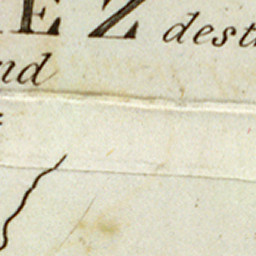 EZ dest
nd